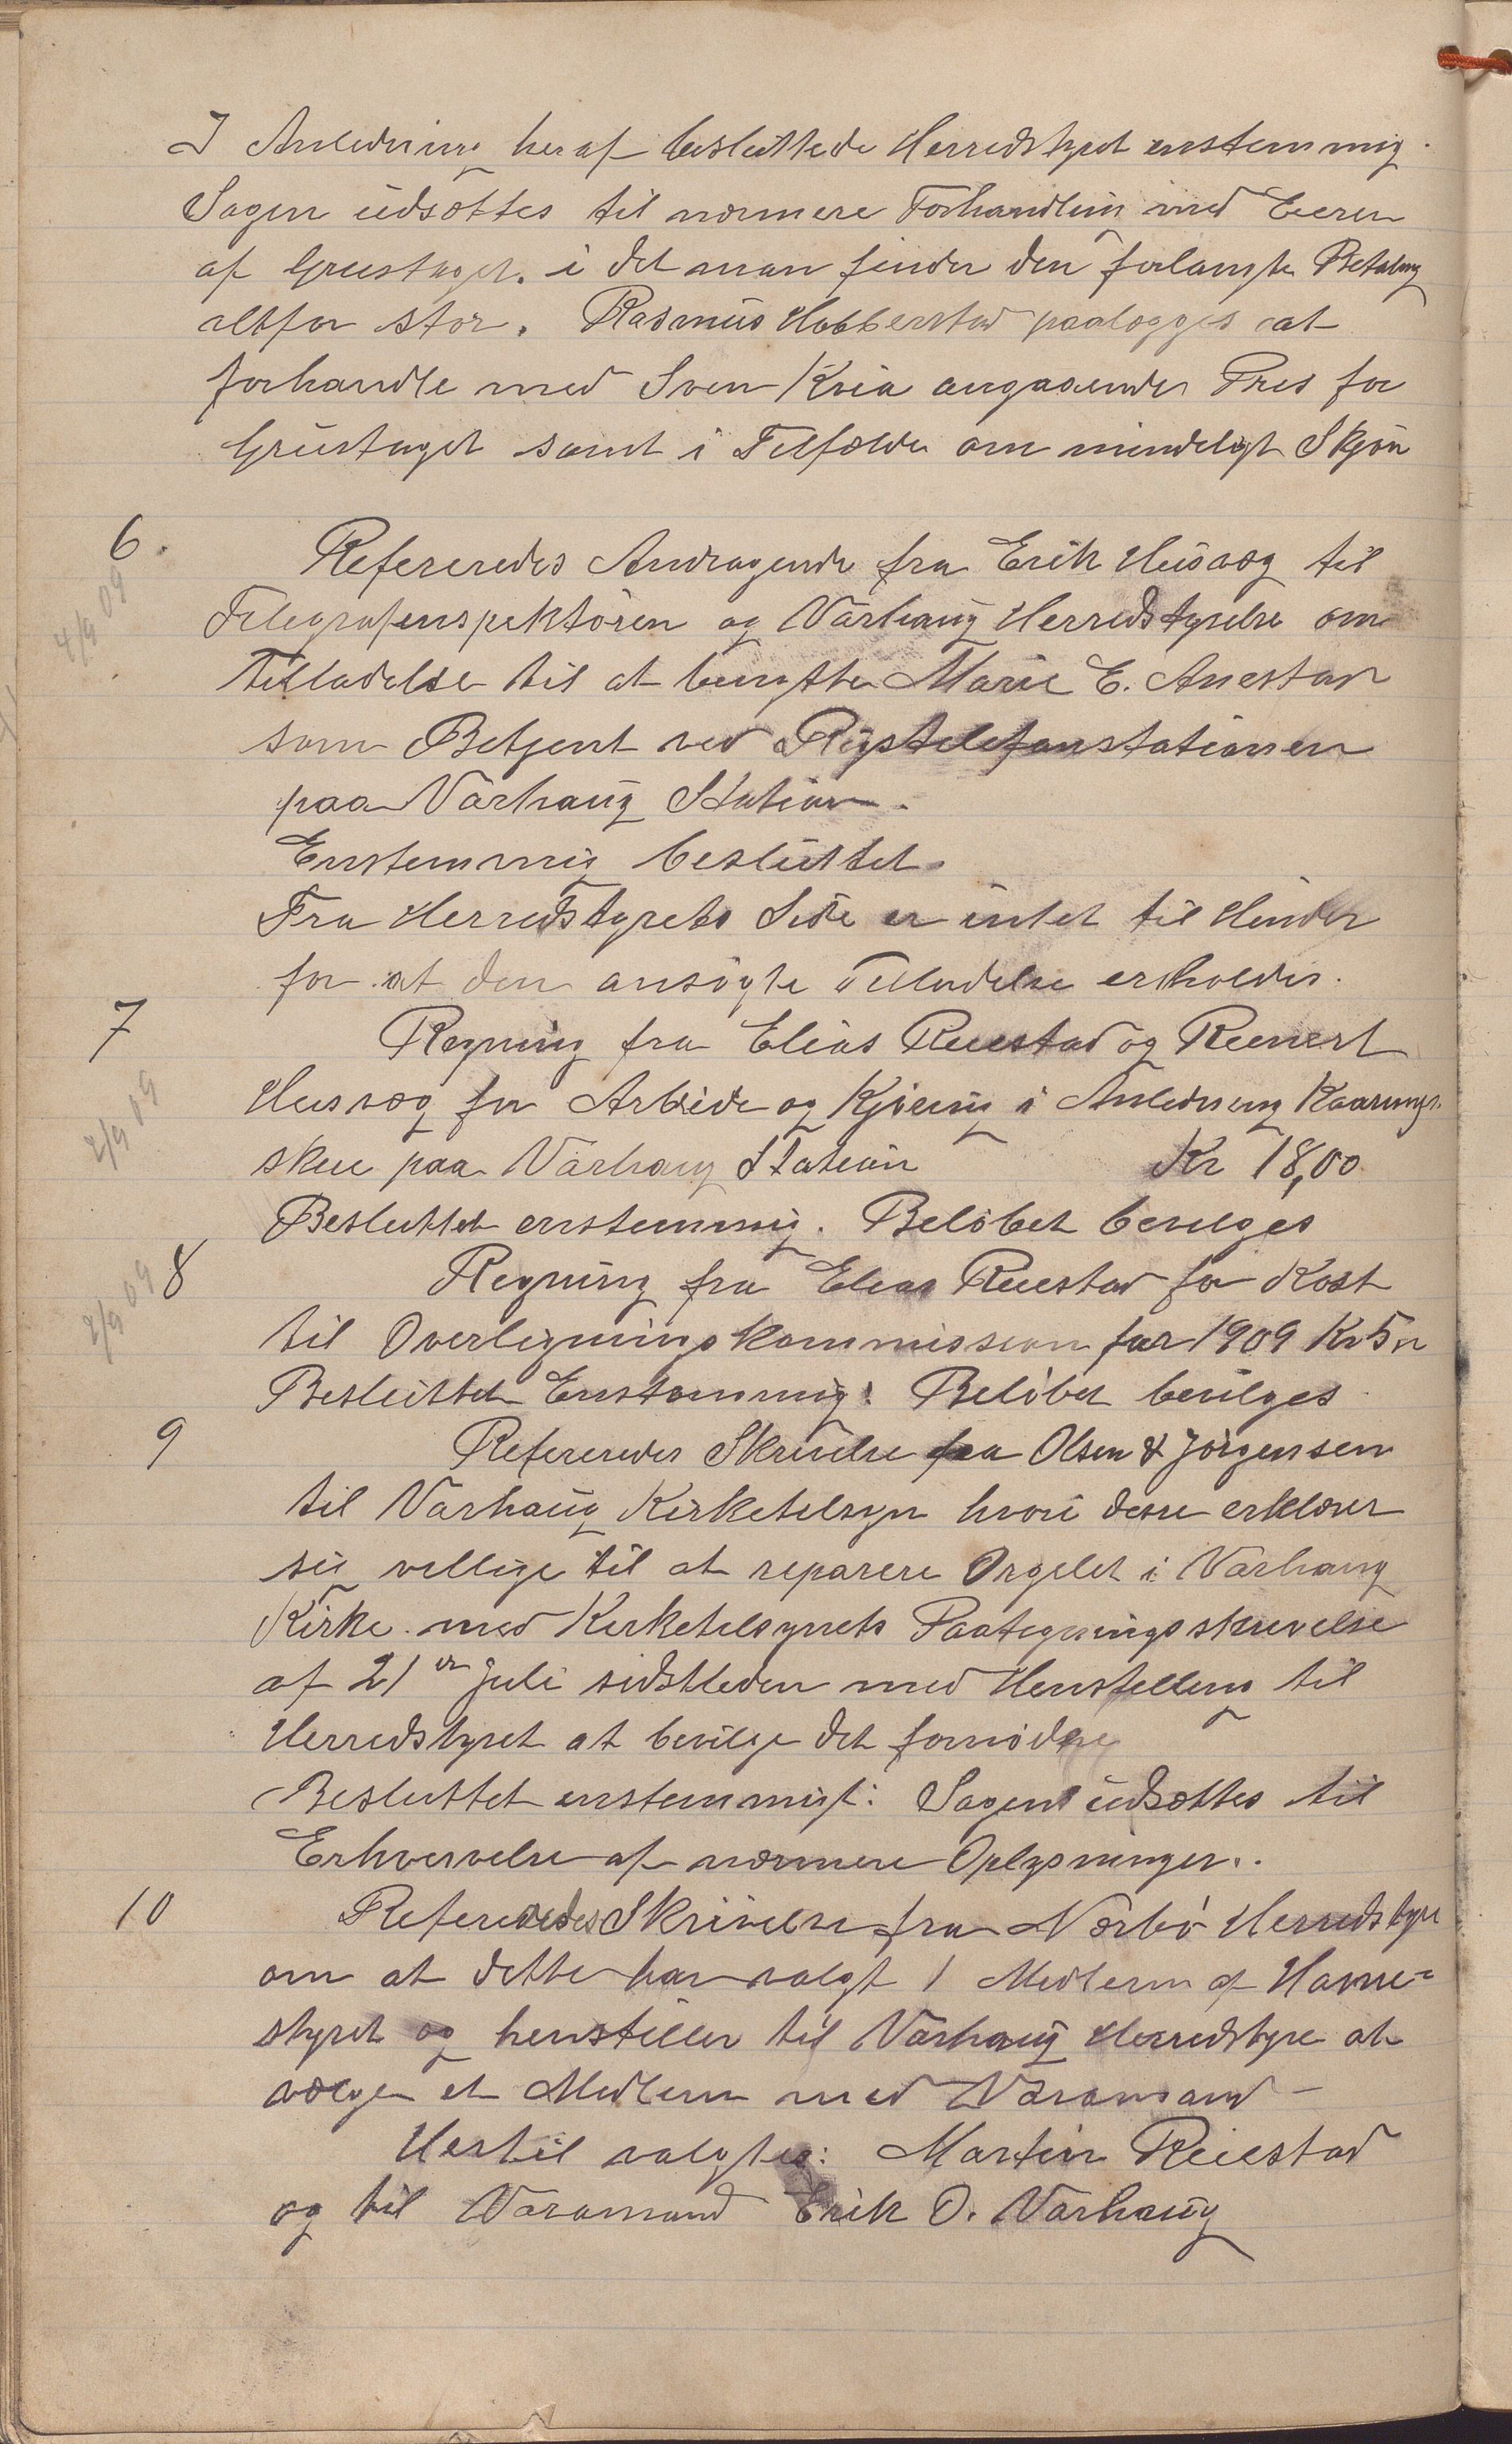 I Anledning heraf besluttede Herredstyret enstemmig.
Sagen udsættes til nærmere Forhandling med Eieren
af Grustaget. i det man finder den forlangte Betaling
altfor stor. Rasmus Hobberstad paalægges at
forhandle med Sven Kvia angaaende Pris for
Grustaget samt i Tilfælde om mindeligt Skjøn
6. Refereredes Andragende fra Erik Husvæg til
Telegrafinspektören og Varhaug Herredstyrelse om
Tilladelse til at benytte Marie E. Anestad
som Betjent ved Rigstelefonstationen
paa Varhaug Station.
Enstemmig besluttet.
Fra Herredstyrets Side er intet til Hinder
for at den ansögte Tilladelse erholdes.
4/9 09
7 Regning fra Elias Reiestad og Reinert
Husvæg for Arbeide og Kjöring i Anledning Kaarings
skue paa Varhaug Station Kr 18,00
Besluttet enstemmig. Belöbet bevilges
2/9 09
8 Regning fra Elias Reiestad for Kost
til Overligningskommission for 1909 Kr 5
Besluttet Enstemmig: Belöbet bevilges
2/9 09
9 Refereredes Skrivelse fra Olsen & Jörgensen
til Varhaug Kirketilsyn hvori disse erklærer
sig villige til at reparere Orgelet i Varhaug
Kirke. med Kirketilsynets Paategningsskrivelse
af 21 er Juli sidstleden med Henstilling til
Herredstyret at bevilge det fornödne
Besluttet enstemmigt: Sagen udsættes til
Erhvervelse af nærmere Oplysninger..
10 Refereredes Skrivelse fra Nærbö Herredstyre
om at dette har valgt 1 Medlem af Havne-
styret og henstiller til Varhaug Herredstyre at
vælge et Medlem med Varamand -
Hertil valgtes: Martin Reiestad
og til Varamand Erik O. Varhaug